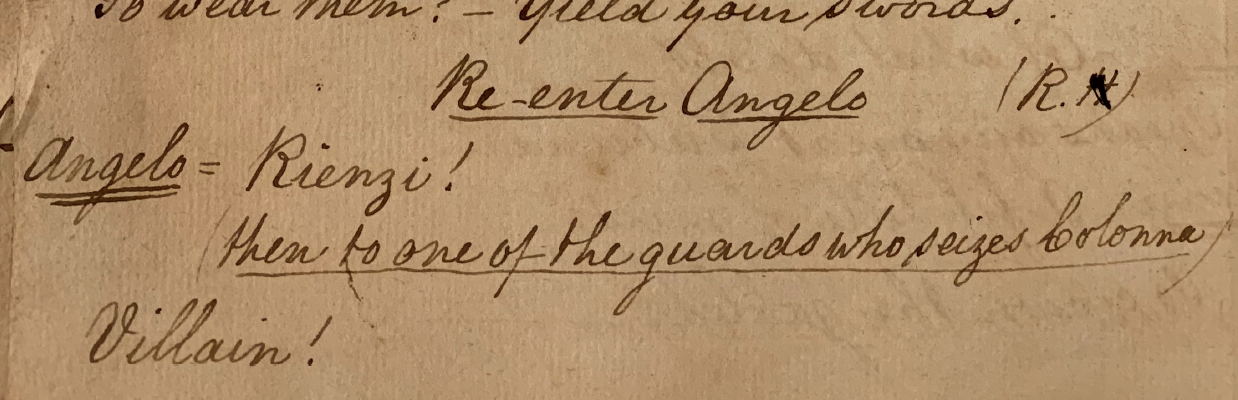 to wear them? – Yield your swords.
Re-enter Angelo (R.H)
Angelo = Rienzi!
(then to one of the guards who seizes Colonna)
Villain!